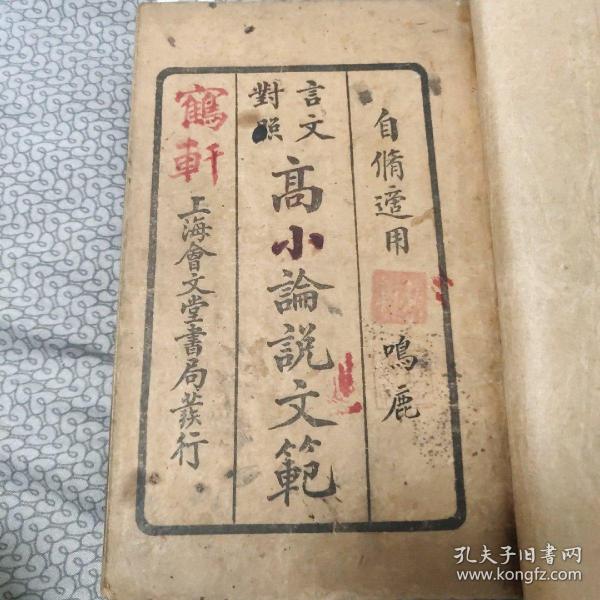 自脩適用
鳴鹿
言文對照
高小論說文範
寉軒
上海會文堂書局發行
孔夫子旧书网
www.kongfz.com